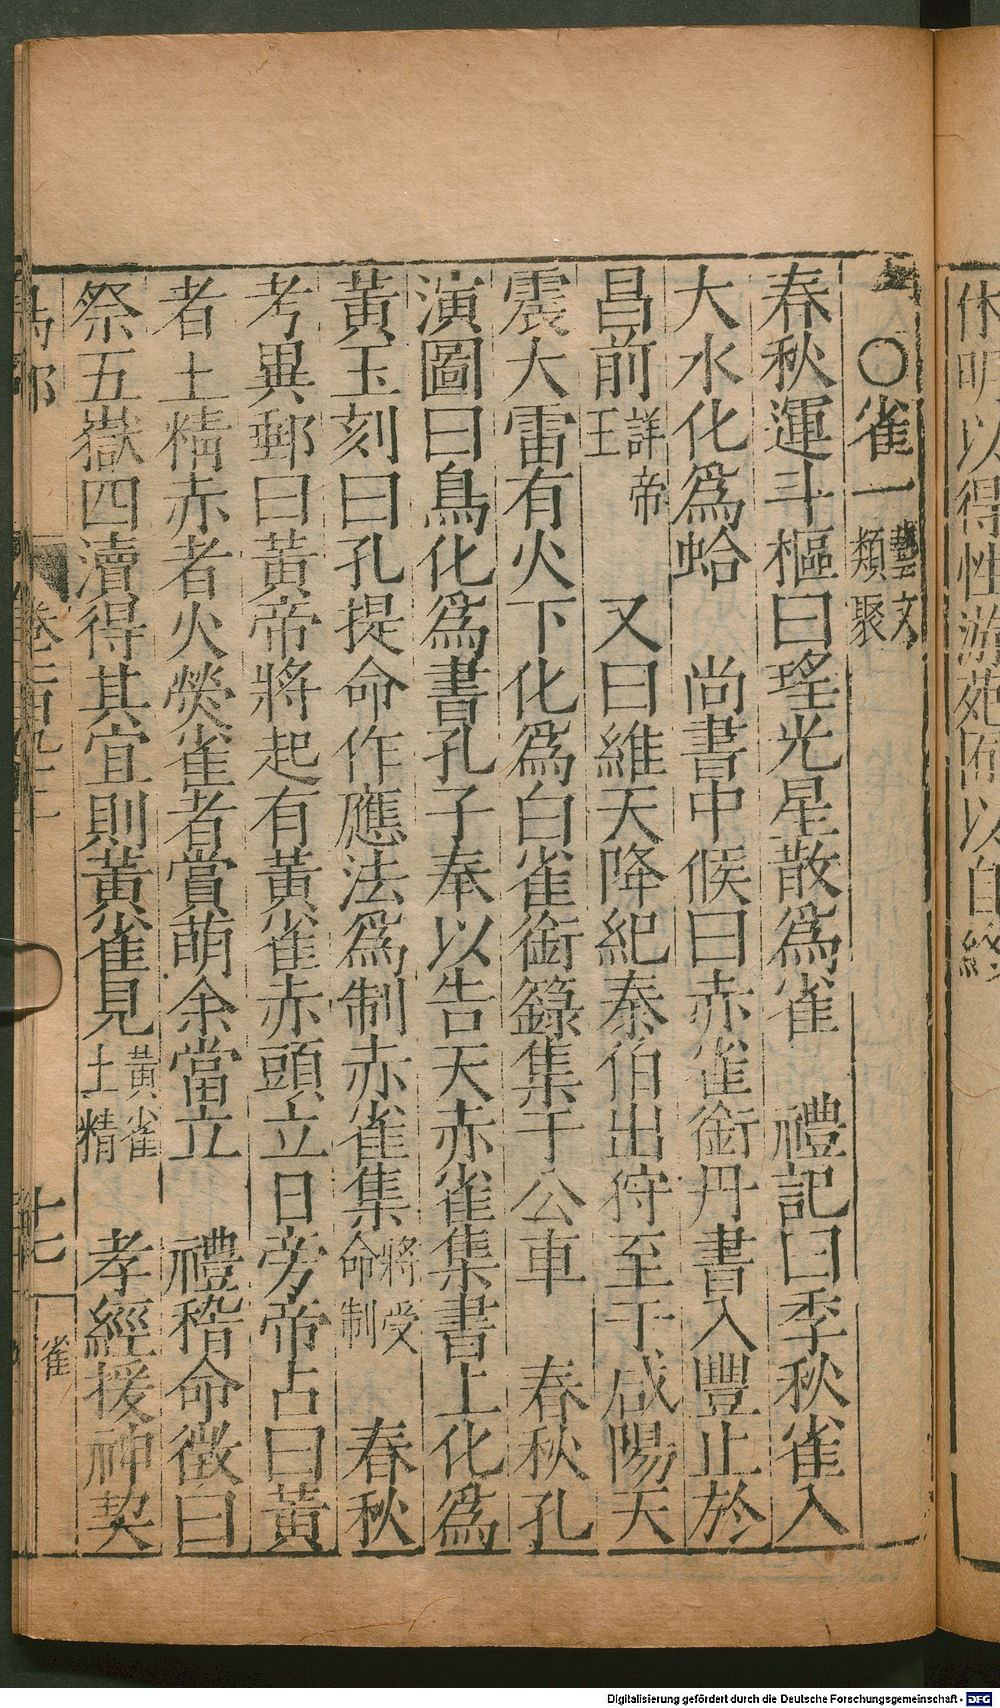 休明以得性游苑囿以自終
○雀一藝文類聚
春秋運斗樞曰瑤光星散爲雀　禮記曰季秋雀入
大水化爲蛤　尚書中候曰赤雀銜丹書入豐止於
昌前詳帝王　又曰維天降紀秦伯出狩至于咸陽天
震大雷有火下化爲白雀銜籙集于公車　春秋孔
演圖曰鳥化爲書孔子奉以告天赤雀集書上化爲
黃玉刻曰孔提命作應法爲制赤雀集將受命制　春秋
考異郵曰黃帝將起有黃雀赤頭立日旁帝占曰黃
者土精赤者火熒雀者賞萌余當立　禮稽命徵曰
祭五嶽四瀆得其宜則黃雀見黃雀土精　孝經援神契
鳥部　卷二百九十二　十七　雀
Digitalisierung gefördert durch die Deutsche Forschungsgemeinschaft - DFG